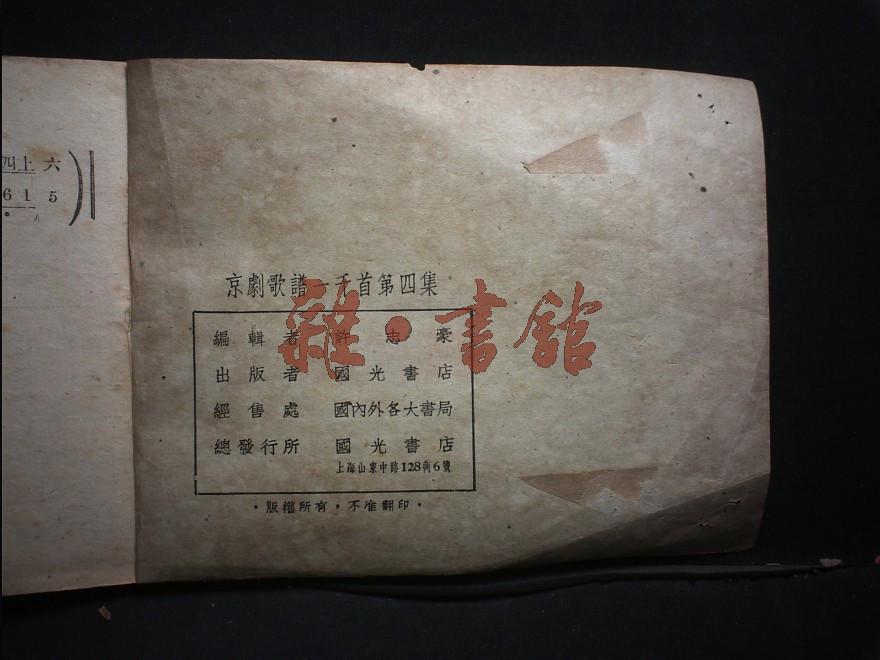 四上 六
6 1 5
京劇歌譜一千首第四集
編輯者 許志豪
出版者 國光書店
經售處 國內外各大書局
總發行所 國光書店
上海山東中路128衖6號
·版權所有·不准翻印·
雜·書舘